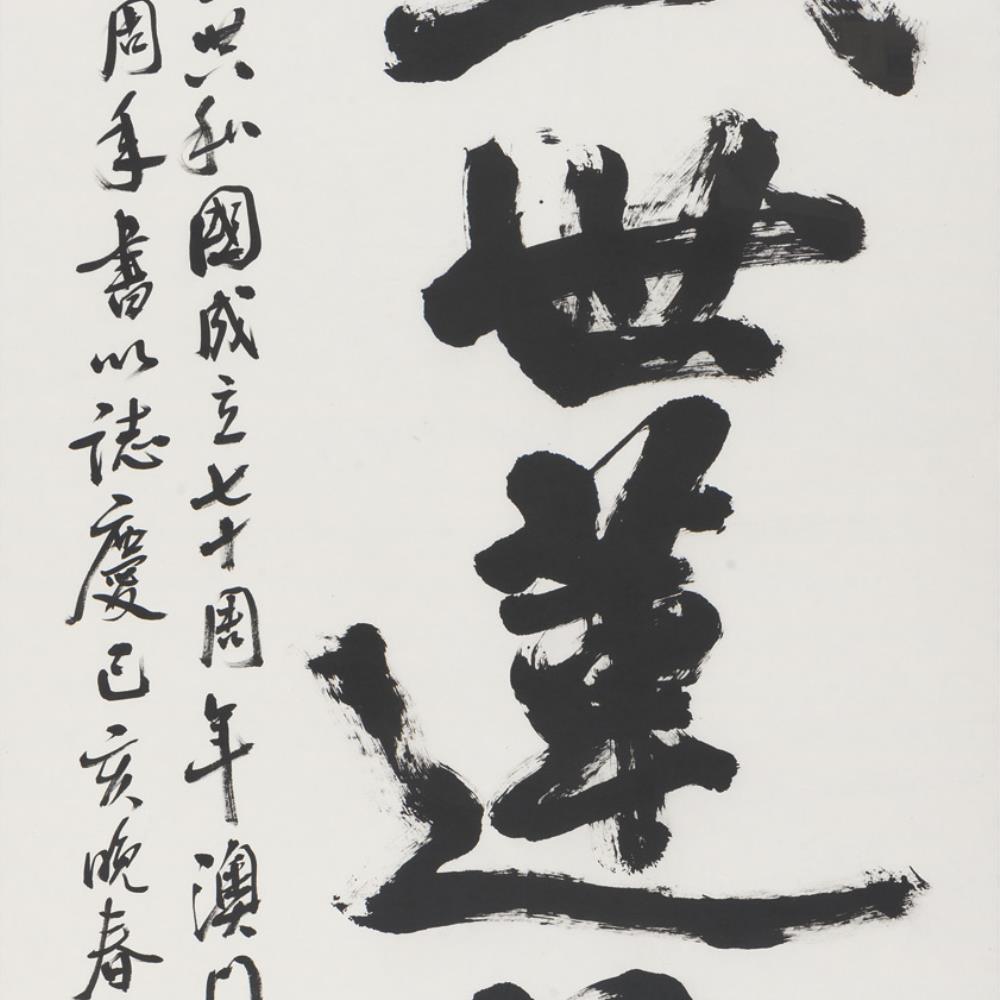 世蓮
共和國成立七十周年澳門
周年書以誌慶己亥晚春